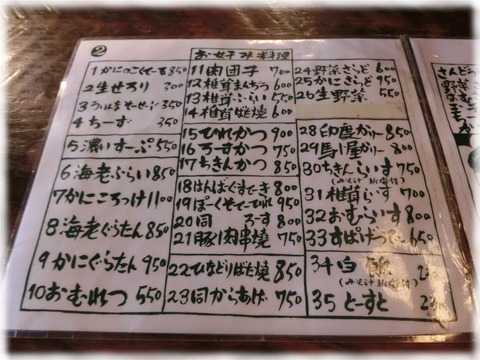 ②
1 かにのこくそーる 850
2 生せろり 300
4 ちーず 350
5 濃いすーぷ 550
6 海老ふらい 850
7 かにころっけ 1100
8 海老ぐらたん 850
9 かにぐらたん 950
10 おむれつ 550
お好み料理
11 肉団子 700
12 椎茸まんぢう 600
13 椎茸ふらい 550
14 椎茸ばた焼 600
15 ひれかつ 900
16 ろーすかつ 750
17 ちきんかつ 850
18 はんばぐすてーき 800
19 ぽーくそてー 950
20 同 ろーす 800
21 豚肉串焼 750
22 ひなどりばた焼 850
23 同からあげ 750
24 野菜さらど 600
25 かにさらど 750
26 生野菜 550
28 印度かりー 850
29 馬じ屋かりー 800
30 ちきんらいす 750
31 椎茸らいす 700
32 おむらいす 800
33 すぱげつ
34 白飯
35 とーすと
さんどう
野菜